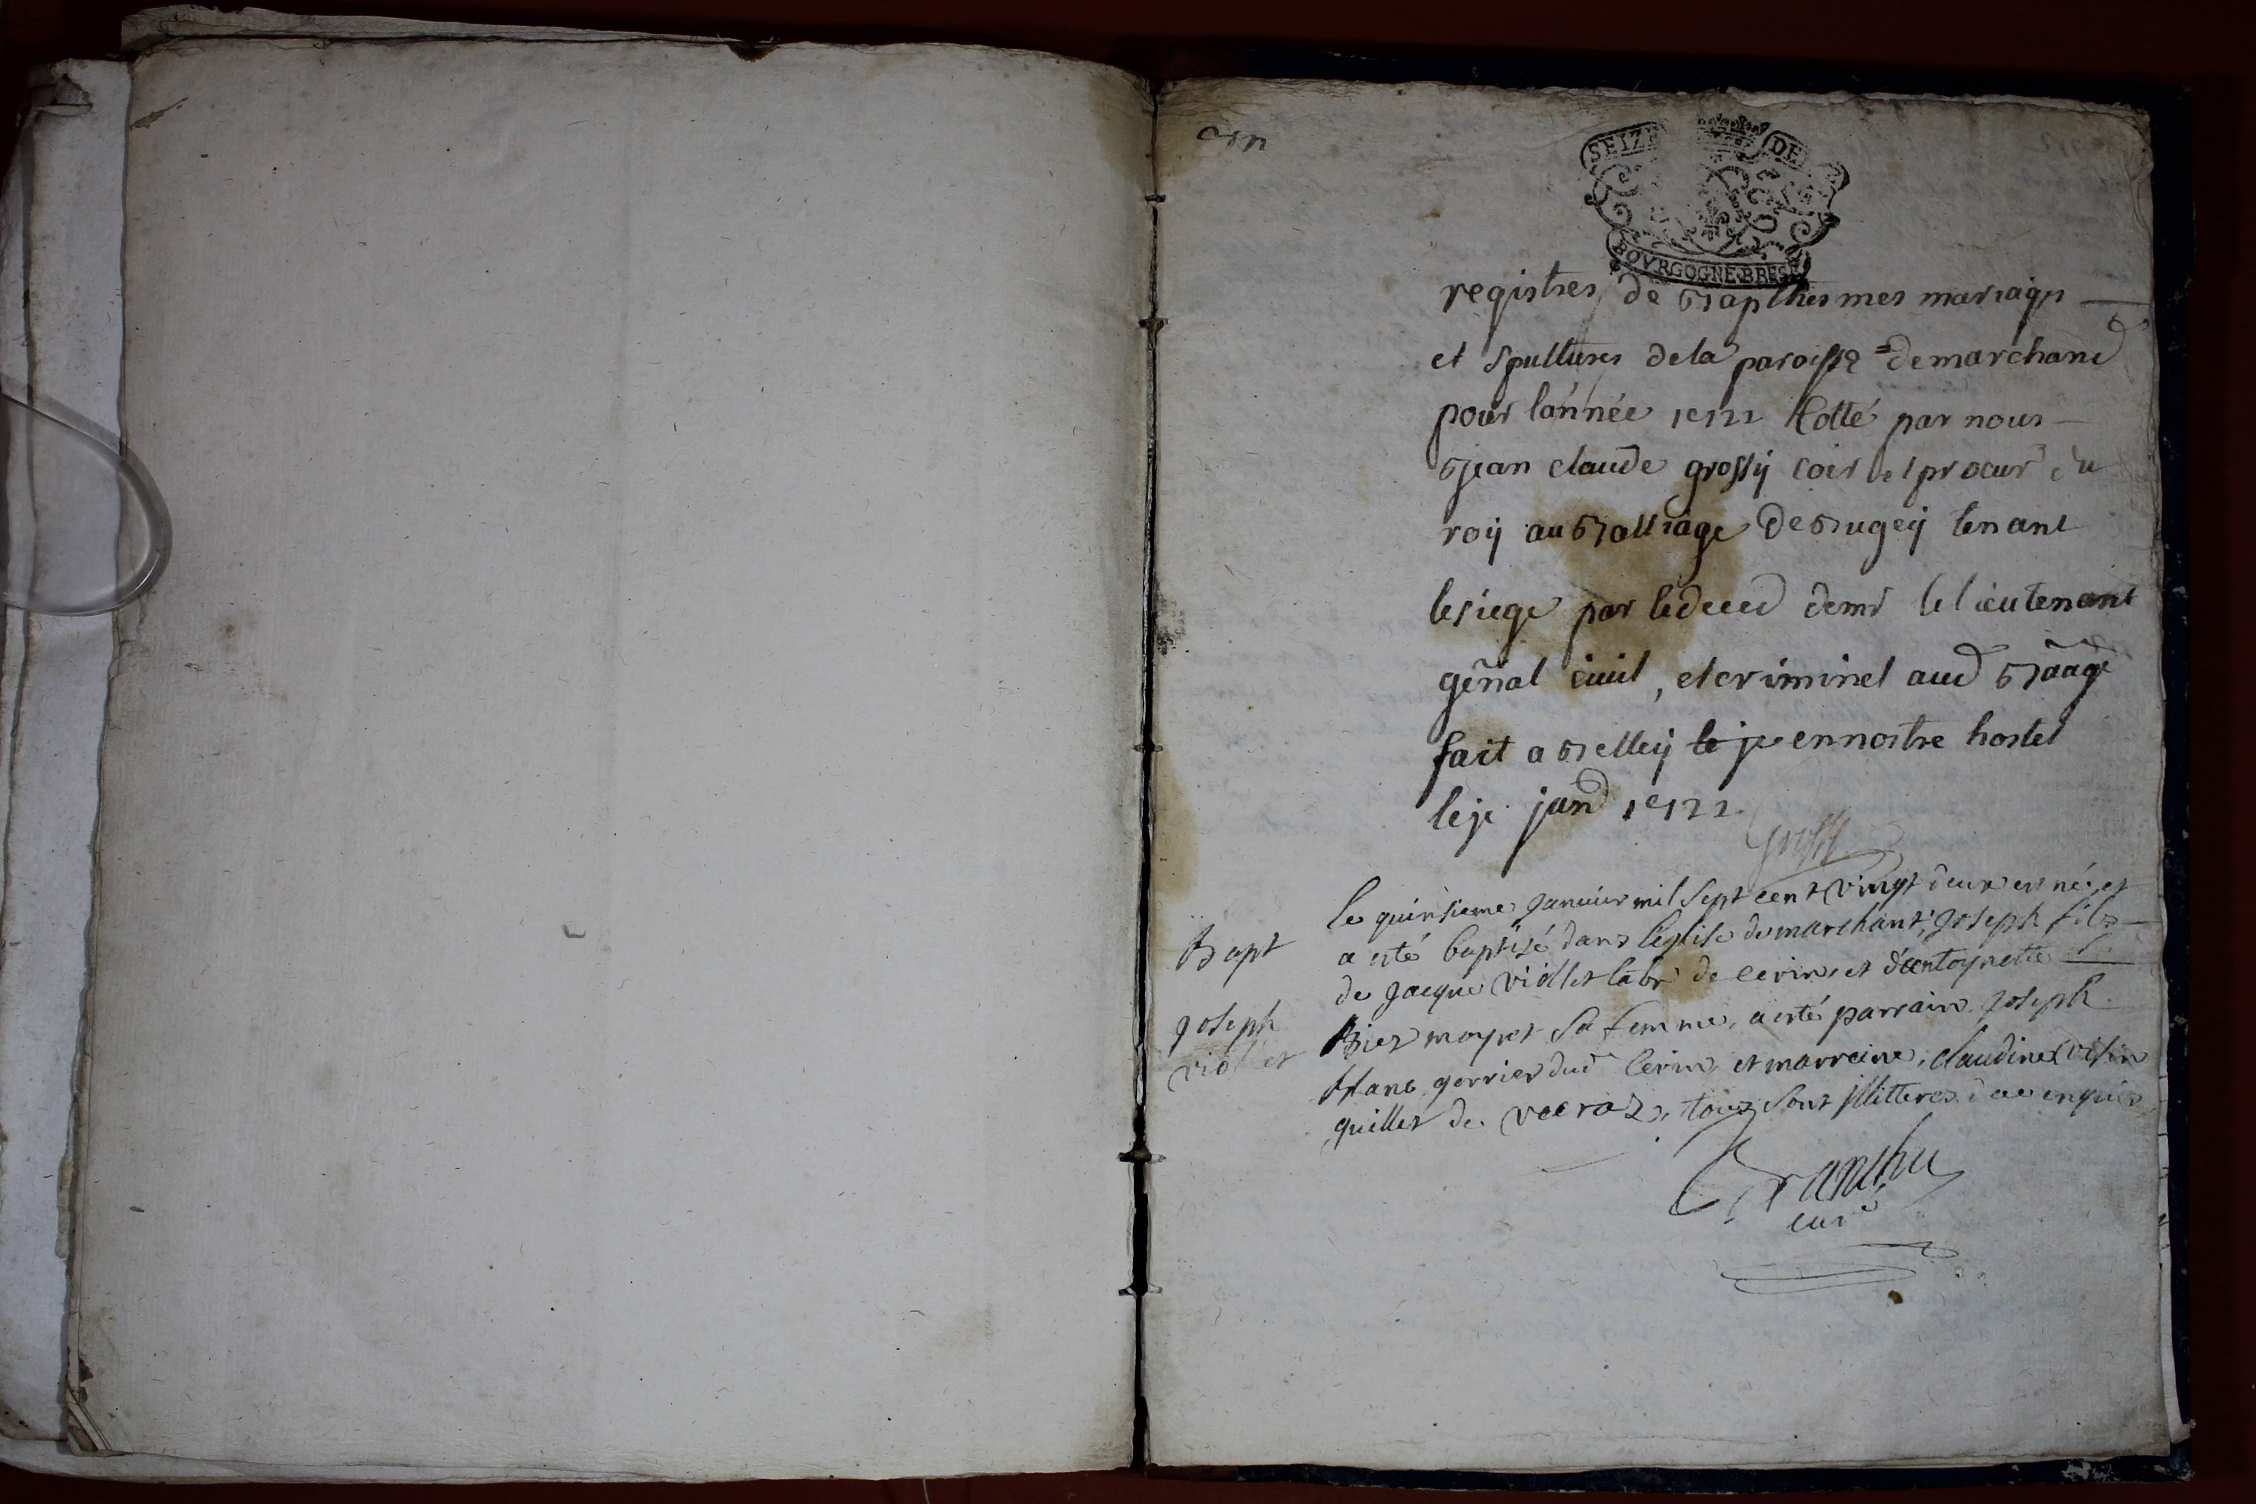 SEIZE DE
BOVRGOGNE BRESSE
registres de Bapthesmes mariages
et Spultures de la paroisse de marchand
pour lannée 1722 Cotté par nous
jean claude grossy coner et procur du
roy au Balliage de Bugey tenant
le siege par le deced de mr le lieutenant
gñal ciuil, et criminel aud Baage
fait a Belley le je en nostre hostel
le je janr 1722
Grossy
Bapt
joseph
viollet
le quinsieme janvier mil sept cent vingt deux es né et
a esté baptisé dans leglise de marchant, joseph fils
de jacque viollet labr de cerin, et d'antoynette
moyret sa femme, a esté parrain joseph
blanc gerrier dud cerin, et marreine, claudine
quillet de veeraz, tous sont illitteres de ce enquis
curé